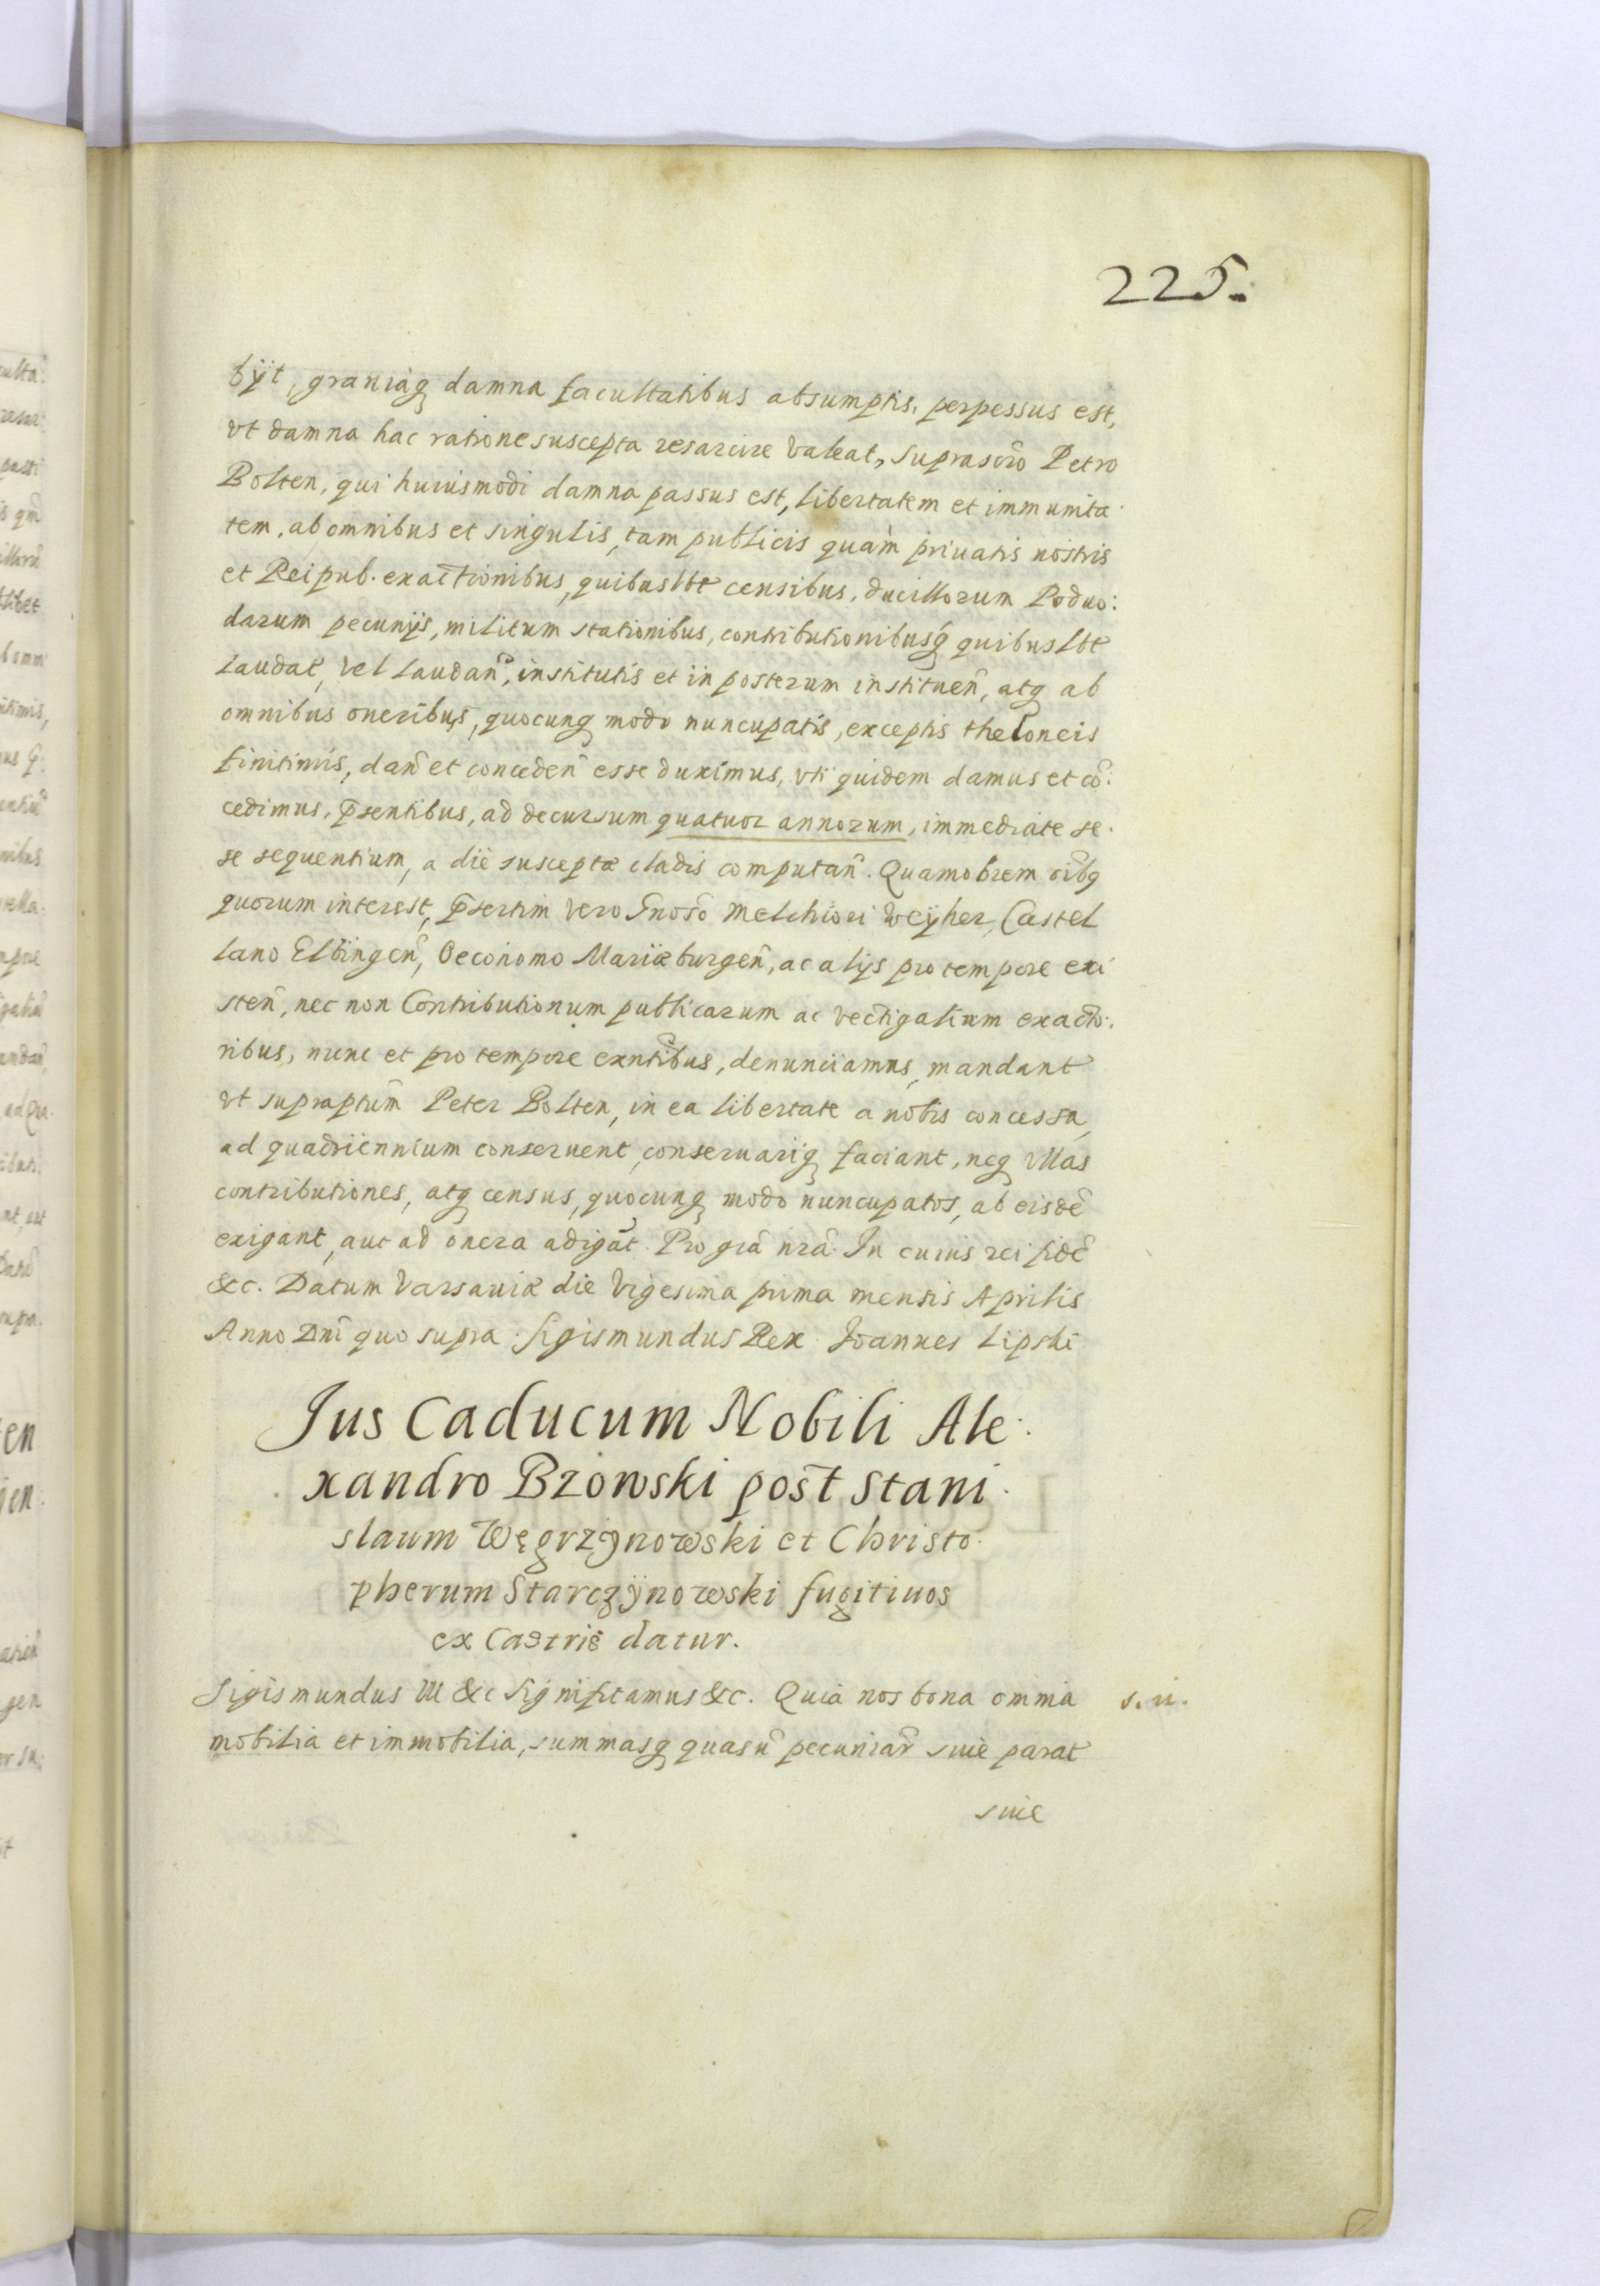 225.
bÿt, grauiaq damna facultatibus absumptis, perpessus est,
vt damna hac ratione suscepta resarcire valeat, suprascrõ Petro
Bolten, qui huiusmodi damna passus est, libertatem et immunita
tem, ab omnibus et singulis, tam publicis quàm priuatis nostris
et Reipub. exactionibus, quibuslbt censibus, ducillorum Poduo:
darum pecunijs, militum stationibus, contributionibusq quibuslbt
laudat, vel laudañ, institutis et in posterum instituen̄, atq ab
omnibus oneribus, quocunq modo nuncupatis, exceptis theloneis
finitimis, dan̄ et conceden̄ esse duximus, vti quidem damus et cō:
cedimus, p̄sentibus, ad decursum quatuor annorum, immediate se
se sequentium, a die susceptæ cladis computan̄. Quamobrem oībq
quorum interest, p̄sertim vero Gnosō Melchiori Weÿher, Castel
lano Elbingen̄, Oeconomo Mariæburgen̄, ac alijs pro tempore exi
sten̄, nec non Contributionum publicarum ac vectigalium exacto:
ribus, nunc et pro tempore exntibus, denunciamus, mandant
vt supraptum̄ Peter Bolten, in ea libertate a nobis concessa,
ad quadriennium conseruent, conseruariq faciant, neq vllas
contributiones, atq census, quocunq modo nuncupatos, ab eisdē
exigant, aut ad onera adigāt. Pro grā nrā. In cuius rei fidē
&c. Datum Varsauiæ die Vigesima prima mensis Aprilis
Anno Dnī quo supra. Sigismundus Rex Joannes Lipski
Jus Caducum Nobili Ale:
xandro Bzowski post Stani
slaum Węgrzÿnowski et Christo
pherum Starczÿnowski fugitiuos
ex Castris datur.
Sigismundus III &c Significamus &c. Quia nos bona omnia s. n.
mobilia et immobilia, summasq quasū pecuniar̄ siue parat
siue